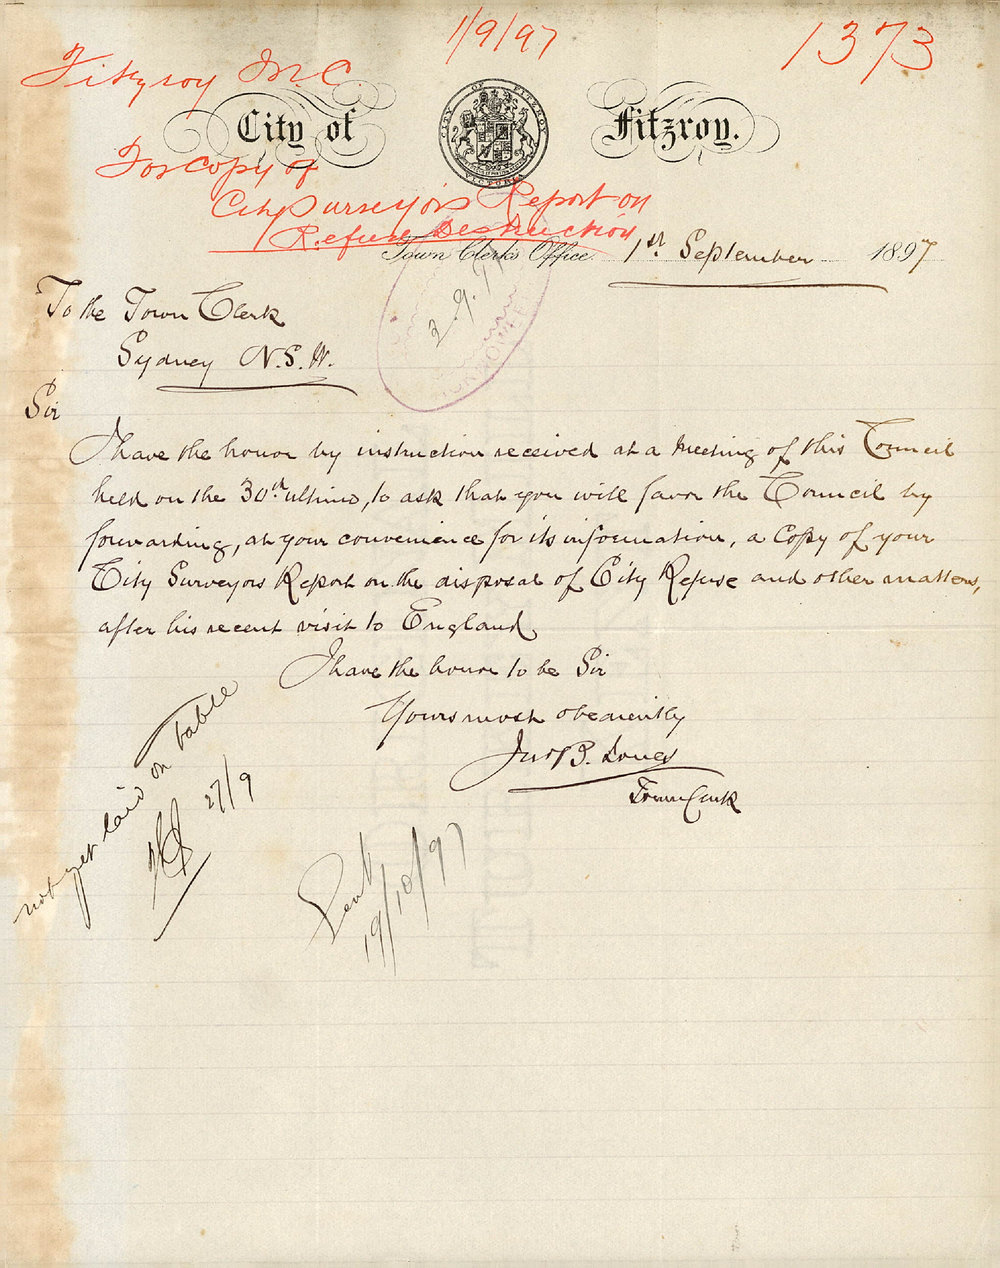 1/9/97
1373
Fitzroy M.C.
City of Fitzroy.
CITY OF FITZROY VICTORIA
For Copy of
City Surveyors Report on
Refuse Destruction
Town Clerk's Office. 1st September 1897
2.9.97
To the Town Clerk
Sydney N.S.W.
Sir
I have the honor by instruction received at a Meeting of this Council
held on the 30th ultimo, to ask that you will favor the Council by
forwarding, at your convenience for its information, a Copy of your
City Surveyors Report on the disposal of City Refuse and other matters,
after his recent visit to England.
I have the honor to be Sir
Yours most obediently
Jas B. Jones
Town Clerk
not yet laid on table
27/9
Sent
19/10/97